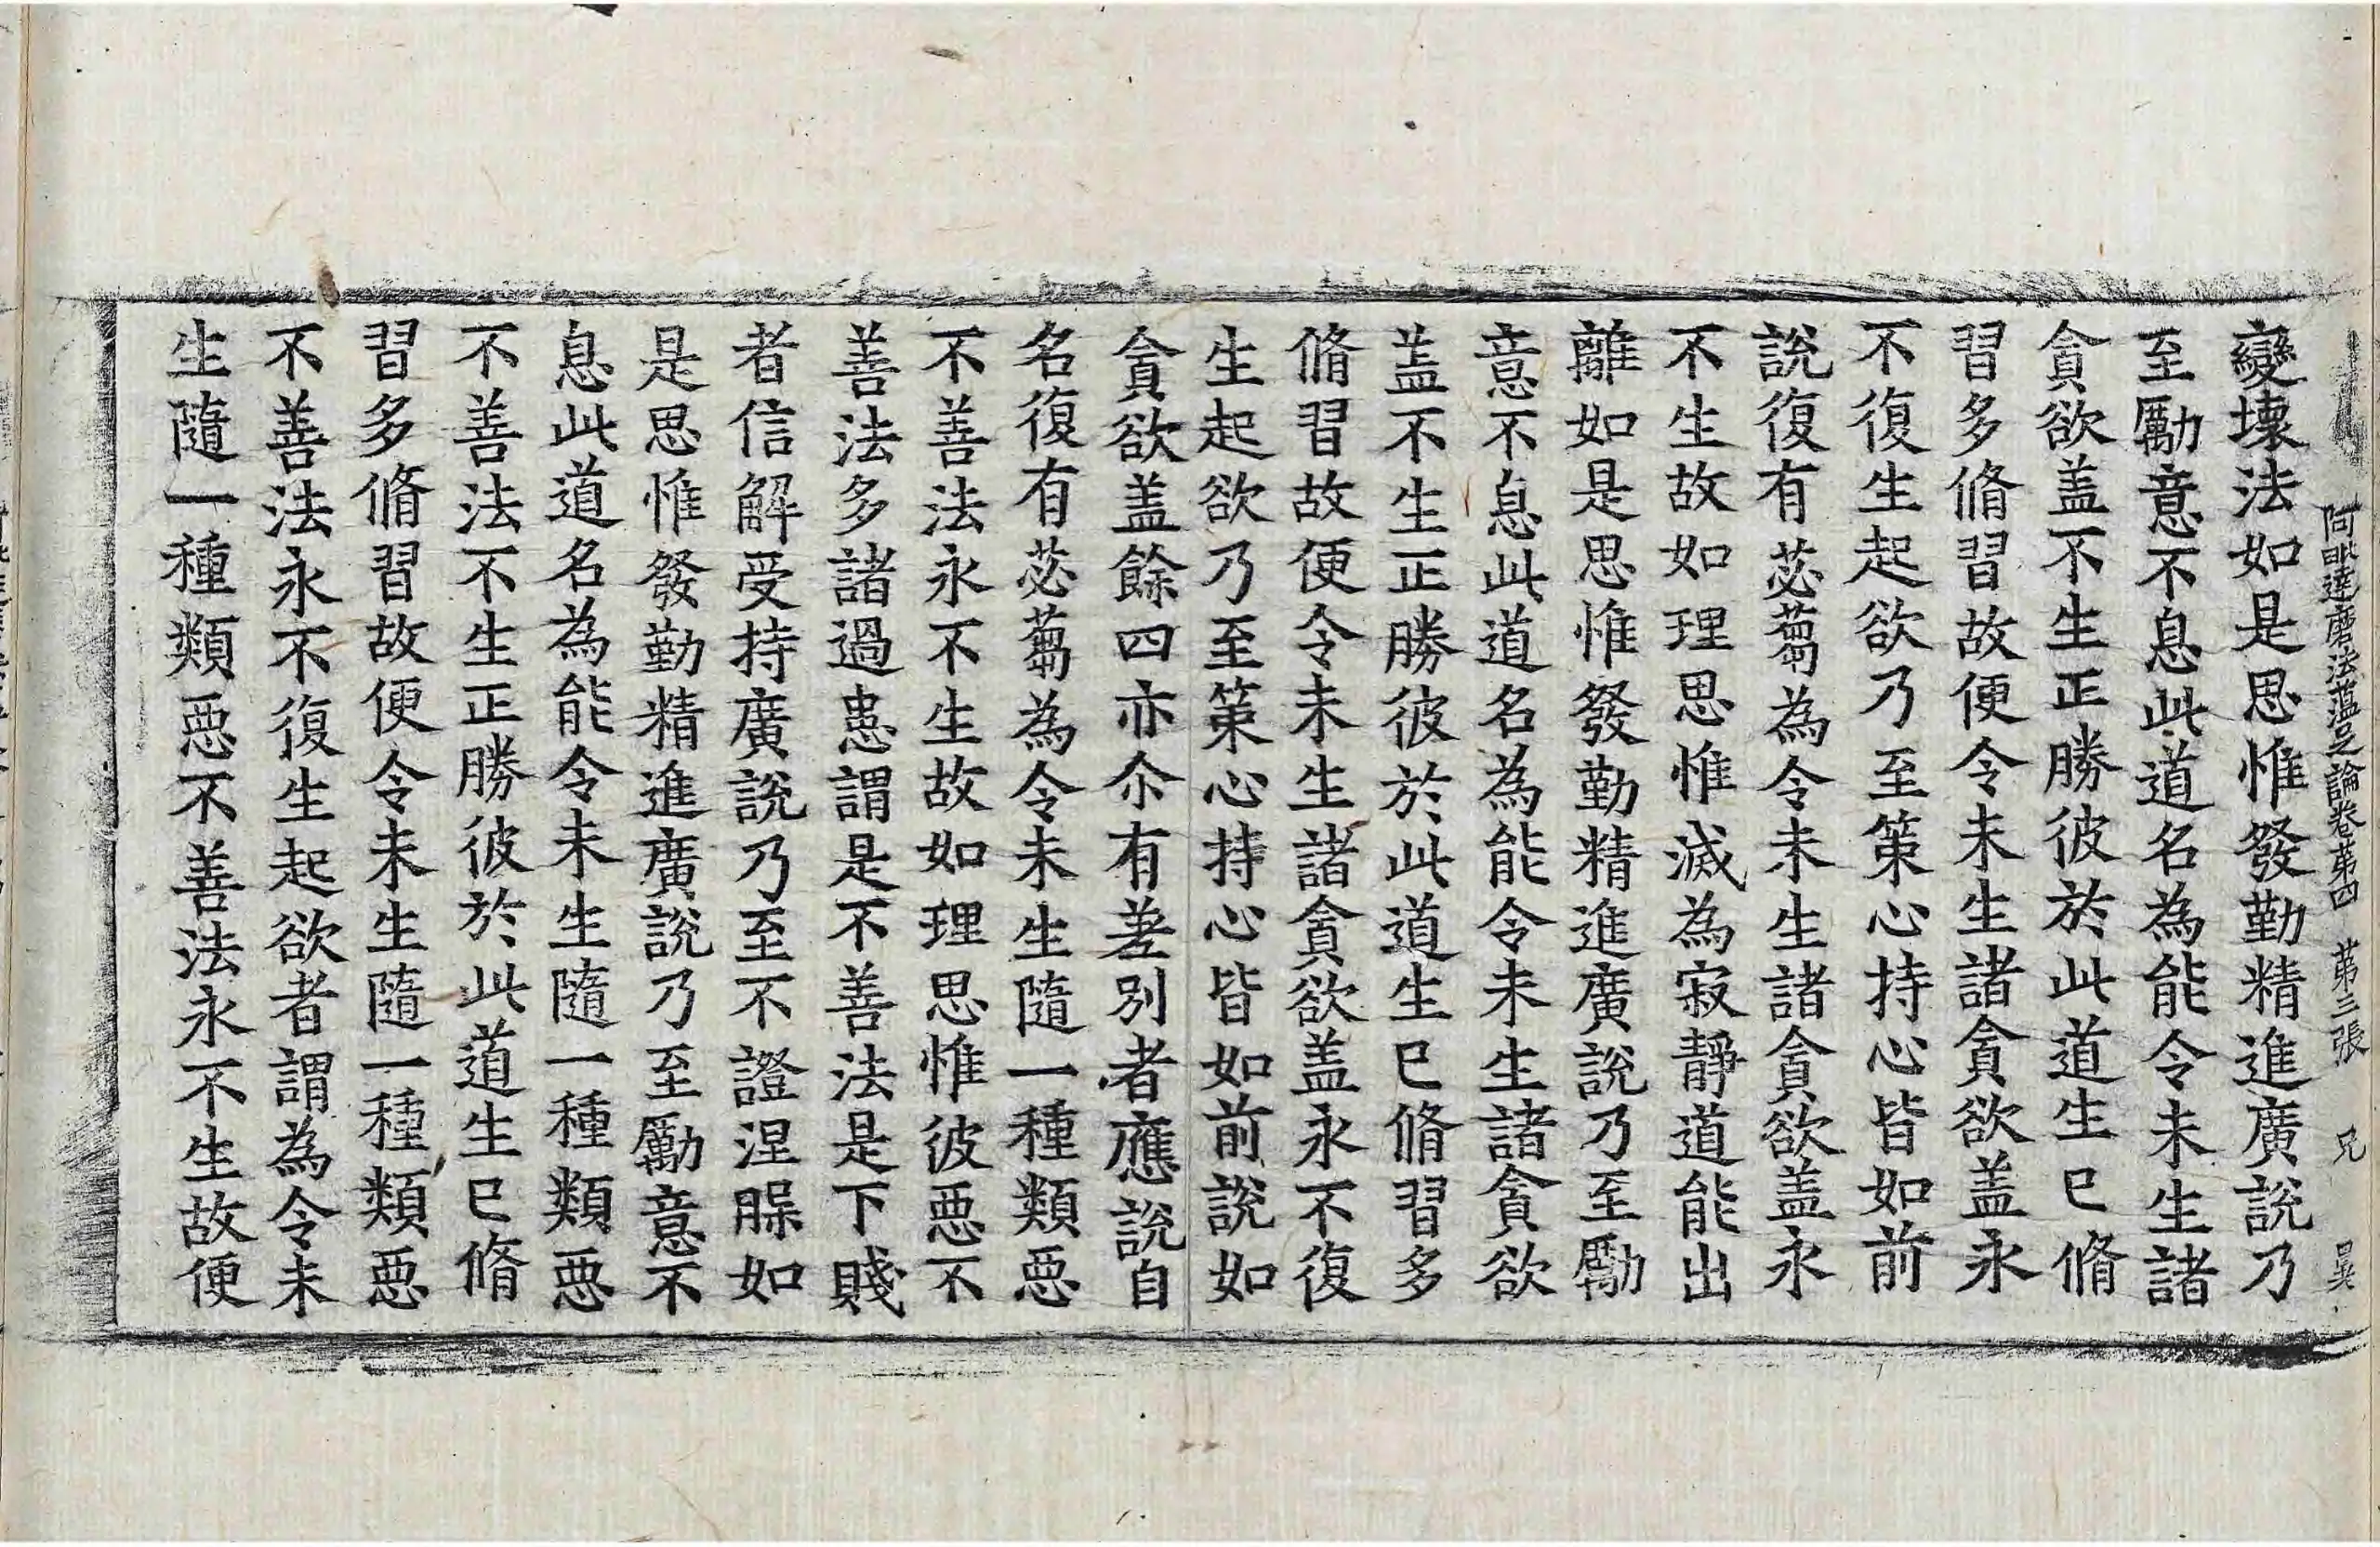 阿毗達磨法蘊足論卷第四 第三張 兄 昊
變壞法如是思惟發勤精進廣說乃
至勵意不息此道名為能令未生諸
貪欲盖不生正勝彼於此道生已脩
習多脩習故便令未生諸貪欲盖永
不復生起欲乃至策心持心皆如前
說復有苾蒭為令未生諸貪欲盖永
不生故如理思惟滅為寂靜道能出
離如是思惟發勤精進廣說乃至勵
意不息此道名為能令未生諸貪欲
盖不生正勝彼於此道生已脩習多
脩習故便令未生諸貪欲盖永不復
生起欲乃至策心持心皆如前說如
貪欲盖餘四亦尒有差別者應說自
名復有苾蒭為令未生隨一種類惡
不善法永不生故如理思惟彼惡不
善法多諸過患謂是不善法是下賤
者信解受持廣說乃至不證涅槃如
是思惟發勤精進廣說乃至勵意不
息此道名為能令未生隨一種類惡
不善法不生正勝彼於此道生已脩
習多脩習故便令未生隨一種類惡
不善法永不復生起欲者謂為令未
生隨一種類惡不善法永不生故便